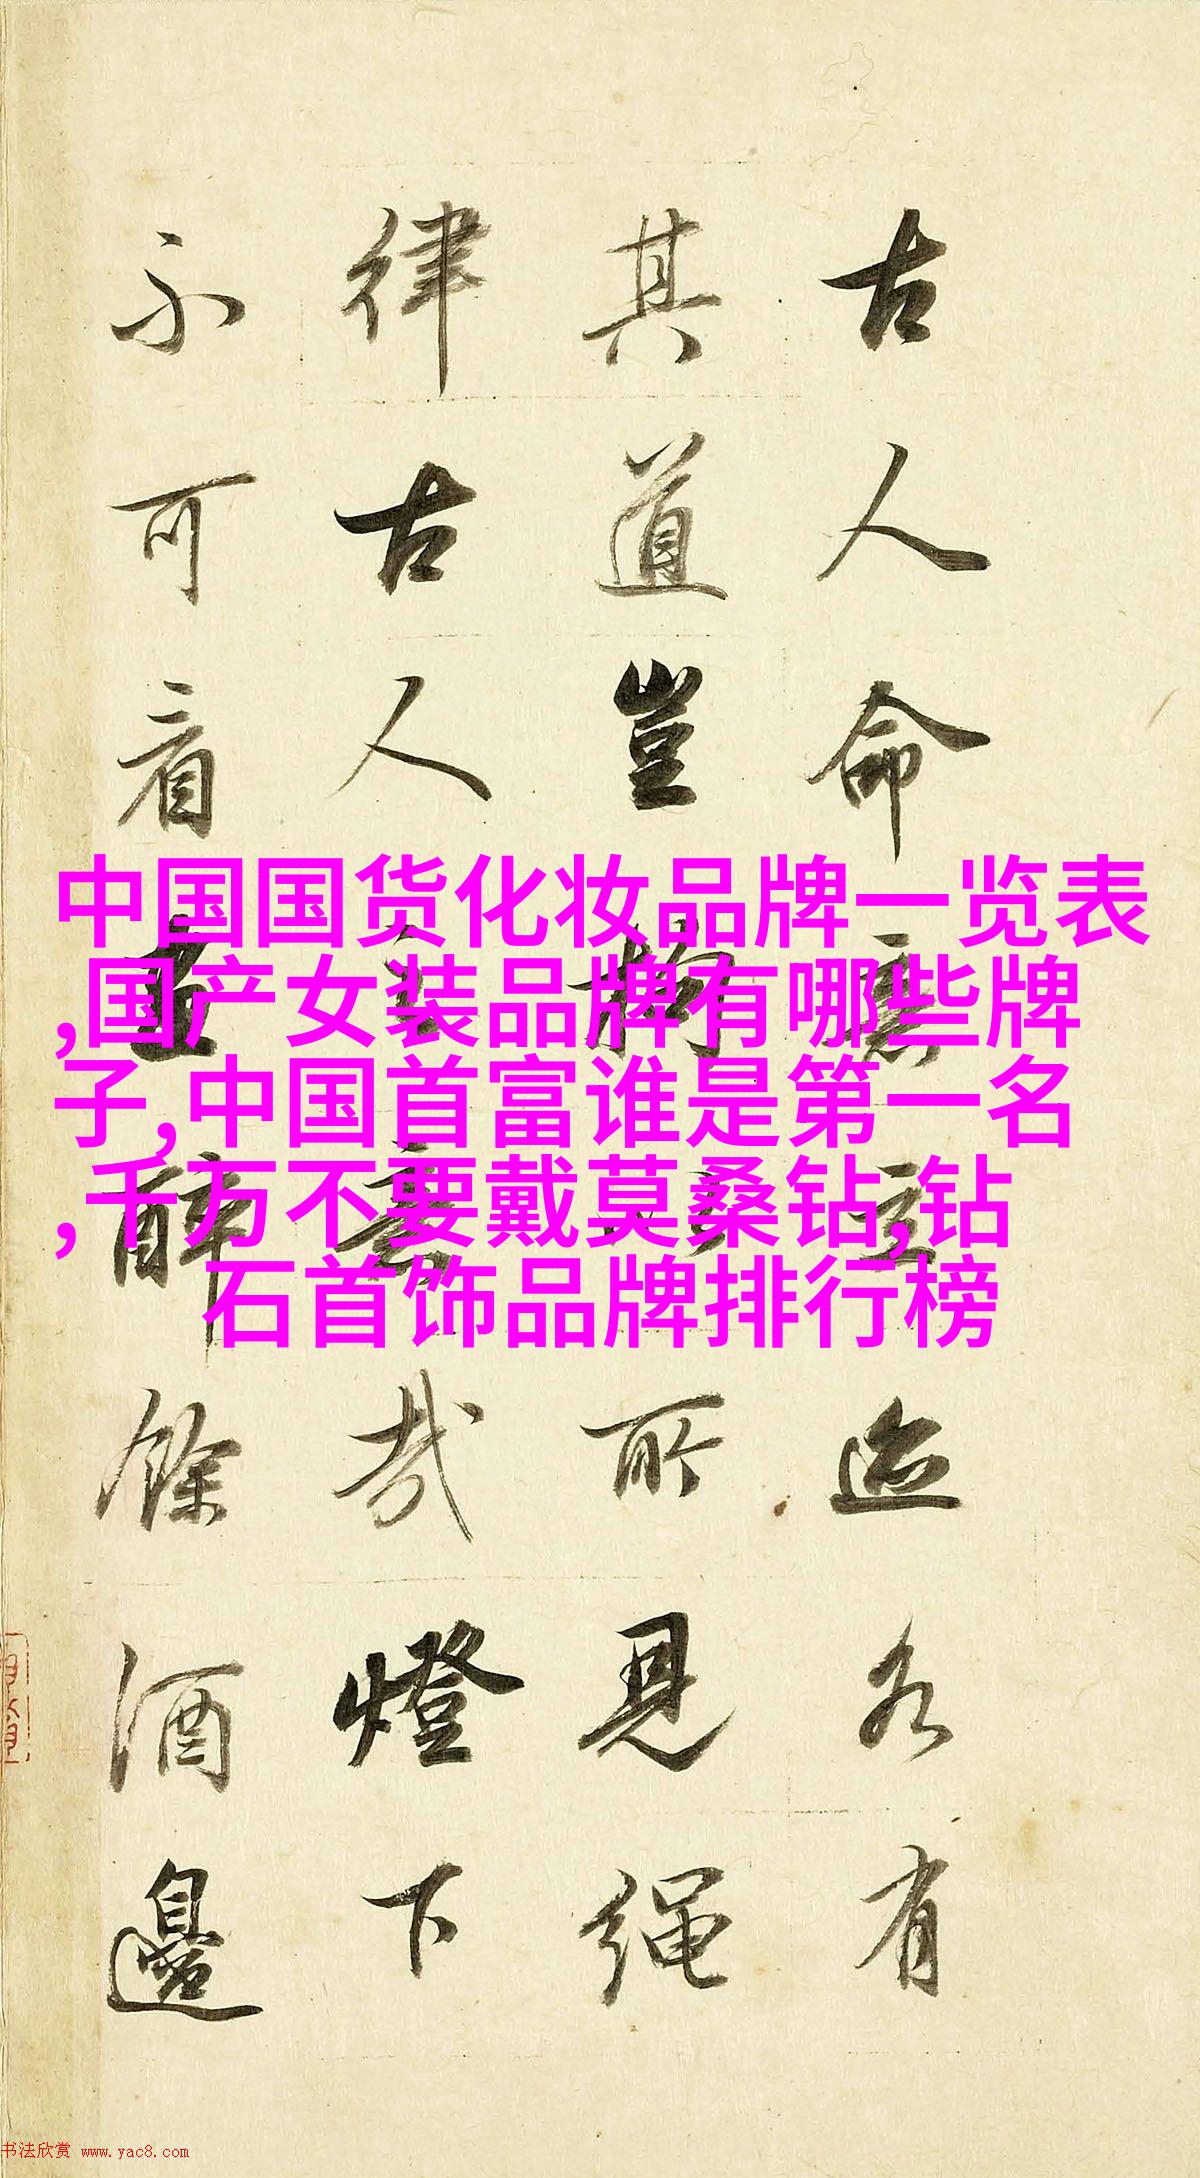 中国国货化妆品牌一览表
,国产女装品牌有哪些牌
子,中国首富谁是第一名
,千万不要戴莫桑钻,钻
石首饰品牌排行榜
古人命意立迹各有
其道豈拘以所見繩
律古人之意哉燈下
不可看畫醉餘酒邊
书法欣赏 www.yac8.com